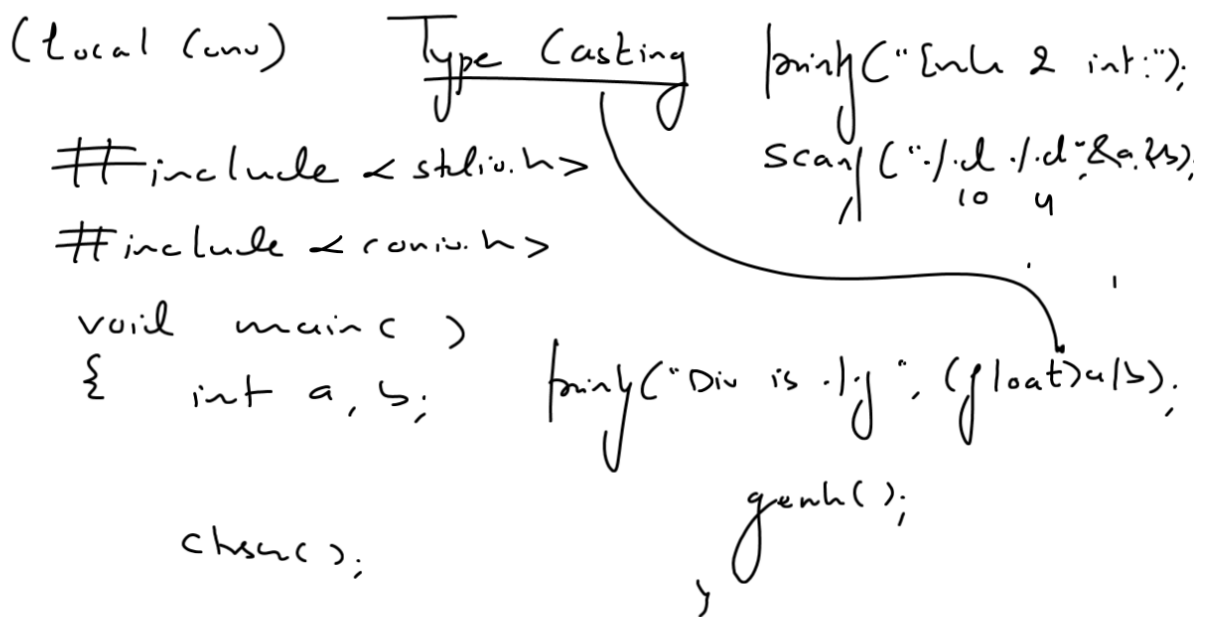 (Local Conv)
Type Casting
#include <stdio.h>
#include <conio.h>
void main( )
{ int a, b;
clrscr( );
printf("Enter 2 int:");
scanf("%d %d",&a,&b);
10 4
printf("Div is %f", (float)a/b);
getch( );
}